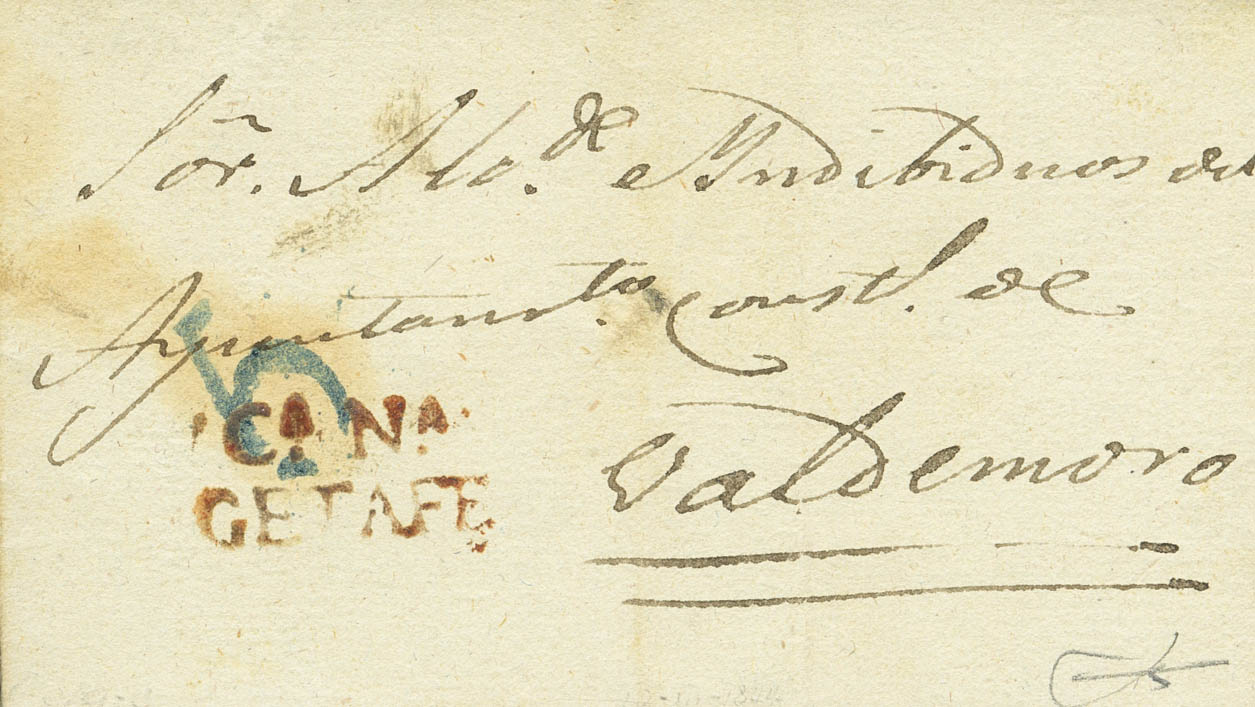 Sõr. Alc.de e Yndibiduos del
Ayuntam.to Const.l de
Valdemoro
5
CNA
GETAFE